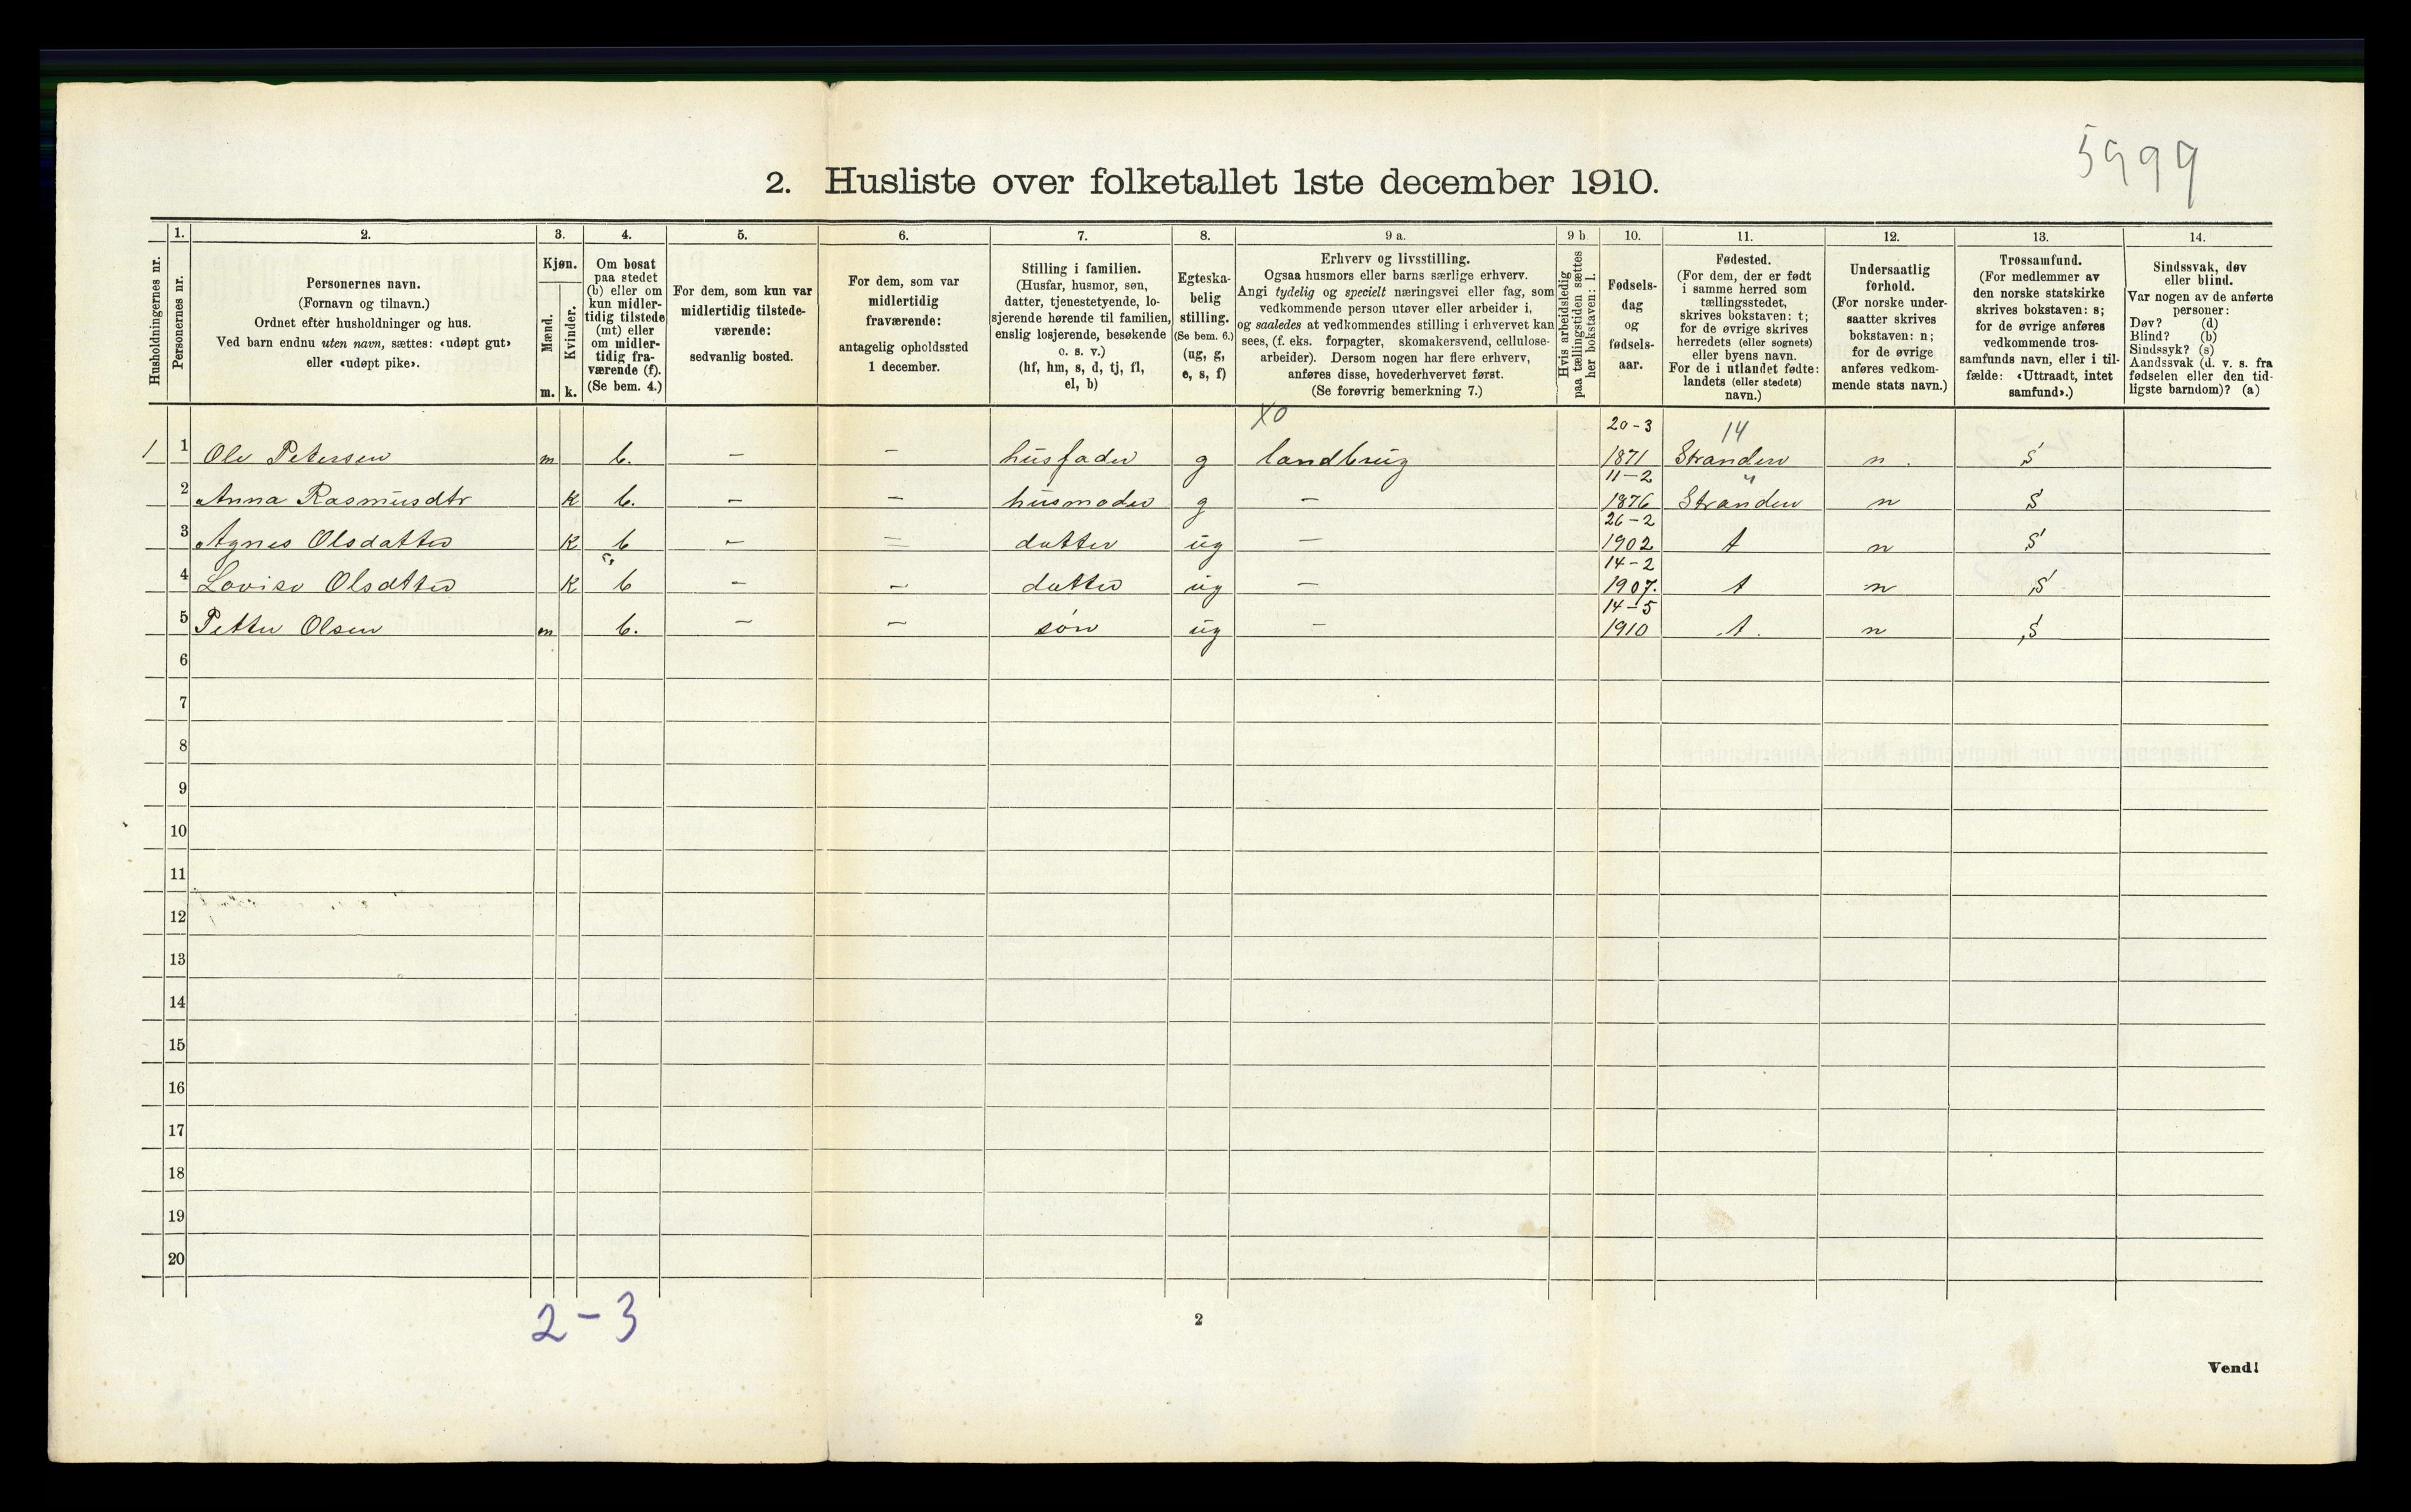 5999
2. Husliste over folketallet 1ste december 1910.
Husholdningernes nr.
1.
Personernes nr.
2.
Personernes navn.
(Fornavn og tilnavn.)
Ordnet efter husholdninger og hus.
Ved barn endnu uten navn, sættes: «udøpt gut»
eller «udøpt pike».
3.
Kjøn.
Mænd.
Kvinder.
m. k.
4.
Om bosat
paa stedet
(b) eller om
kun midler-
tidig tilstede
(mt) eller
om midler-
tidig fra-
værende (f).
(Se bem. 4.)
5.
For dem, som kun var
midlertidig tilstede-
værende:
sedvanlig bosted.
6.
For dem, som var
midlertidig
fraværende:
antagelig opholdssted
1 december.
7.
Stilling i familien.
(Husfar, husmor, søn,
datter, tjenestetyende, lo-
sjerende hørende til familien,
enslig losjerende, besøkende
o. s. v.)
(hf, hm, s, d, tj, fl,
el, b)
8.
Egteska-
belig
stilling.
(Se bem. 6.)
(ug, g,
e, s, f)
9 a.
Erhverv og livsstilling.
Ogsaa husmors eller barns særlige erhverv.
Angi tydelig og specielt næringsvei eller fag, som
vedkommende person utøver eller arbeider i,
og saaledes at vedkommendes stilling i erhvervet kan
sees, (f. eks. forpagter, skomakersvend, cellulose-
arbeider). Dersom nogen har flere erhverv,
anføres disse, hovederhvervet først.
(Se forøvrig bemerkning 7.)
9 b
Hvis arbeidsledig
paa tællingstiden sættes
her bokstaven: l.
10.
Fødsels-
dag
og
fødsels-
aar.
11.
Fødested.
(For dem, der er født
i samme herred som
tællingsstedet,
skrives bokstaven: t;
for de øvrige skrives
herredets (eller sognets)
eller byens navn.
For de i utlandet fødte:
landets (eller stedets)
navn.)
12.
Undersaatlig
forhold.
(For norske under-
saatter skrives
bokstaven: n;
for de øvrige
anføres vedkom-
mende stats navn.)
13.
Trossamfund.
(For medlemmer av
den norske statskirke
skrives bokstaven: s;
for de øvrige anføres
vedkommende tros-
samfunds navn, eller i til-
fælde: «Uttraadt, intet
samfund».)
14.
Sindssvak, døv
eller blind.
Var nogen av de anførte
personer:
Døv? (d)
Blind? (b)
Sindssyk? (s)
Aandssvak (d. v. s. fra
fødselen eller den tid-
ligste barndom)? (a)
X0 20-3 14
1 1 Ole Petersen m b. - - husfader g landbrug 1871 Stranden n. S
11-2 "
2 Anna Rasmusdtr k b. - - husmoder g - 1876 Stranden n S
26-2
3 Agnes Olsdatter k b - = datter ug - 1902 t n S
14-2
4 Lovise Olsdtter k b - - datter ug - 1907. t n S
14-5
5 Petter Olsen m b. - - søn ug - 1910 t. n S
6
7
8
9
10
11
12
13
14
15
16
17
18
19
20
2-3
2
Vend!